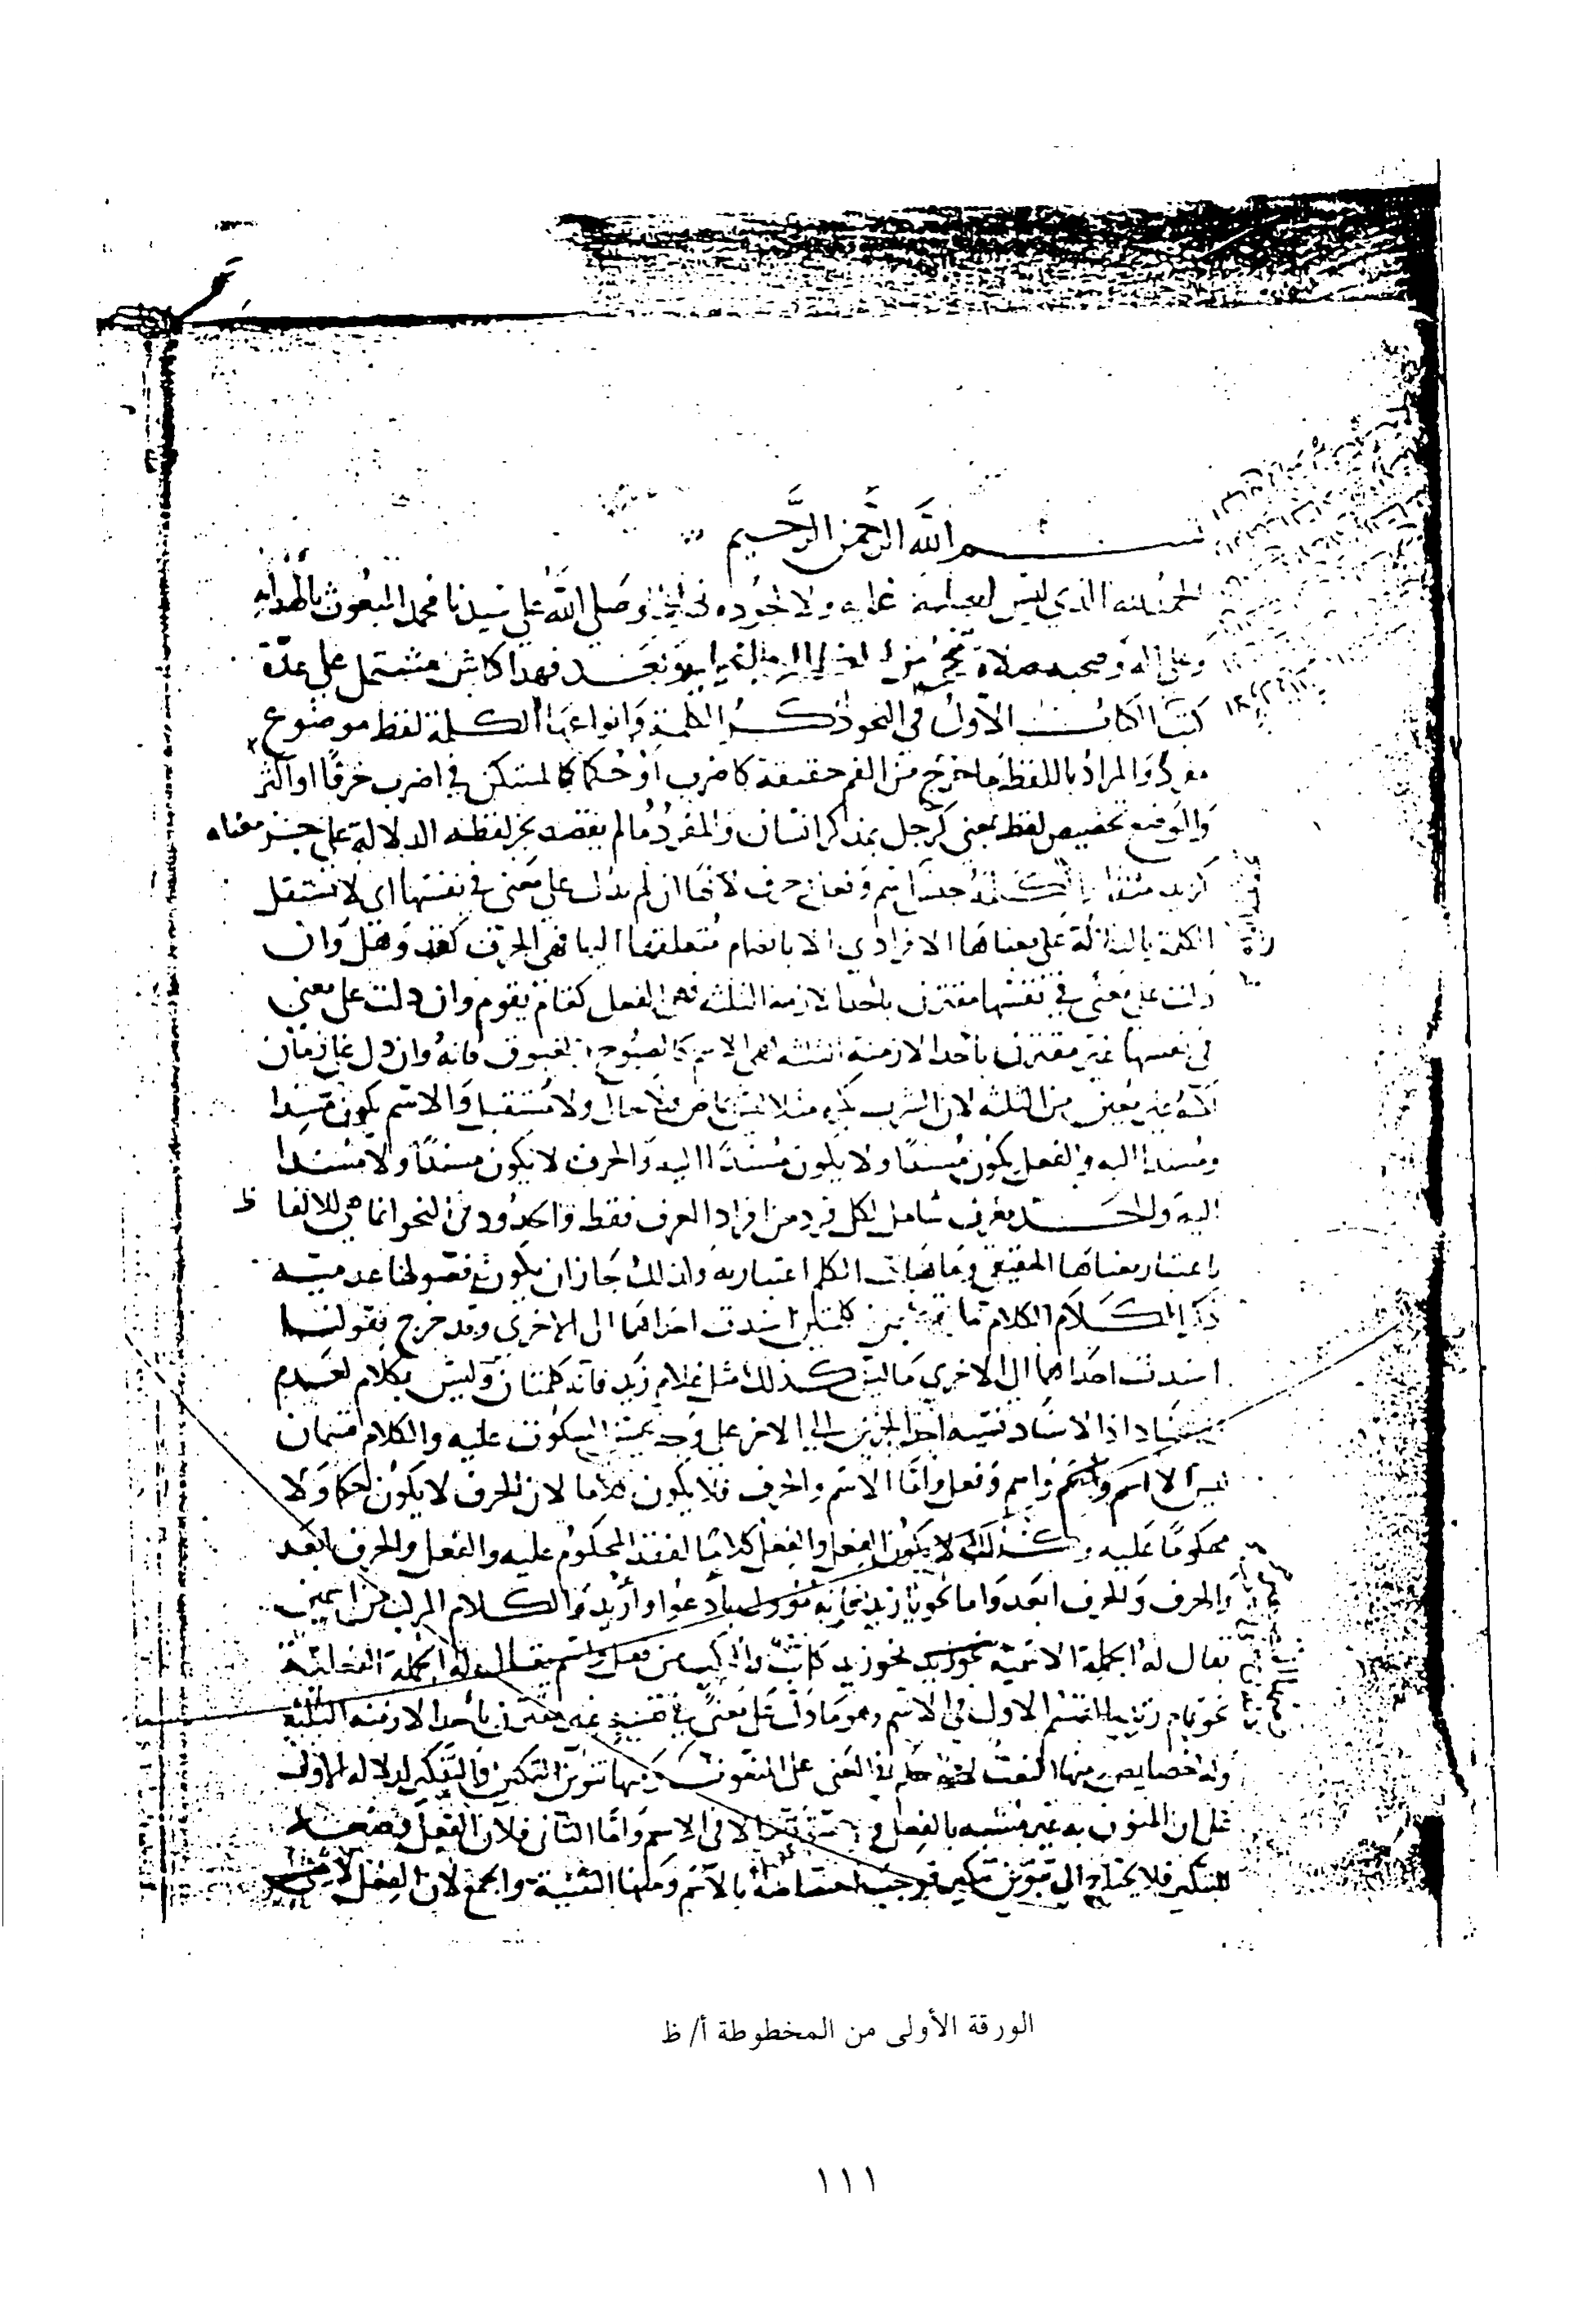 بسم الله الرحمن الرحيم
الحمد لله الذي ليس لعظمته غاية ولا لجوده نهاية وصلى الله على سيدنا محمد المبعوث بالهداية
وعلى آله وصحبه صلاة وبعد فهذا كناش مشتمل على عدة
كتب الكتاب الاول في النحو ذكر الكلمة وانواعها الكلمة لفظ موضوع
مفرد والمراد باللفظ ما خرج من الفم حقيقة كاضرب او حكما كالمستكن في اضرب حرفا او اكثر
والوضع تخصيص لفظ بمعنى كرجل بمذكر انسان والمفرد ما لم يقصد بجزء لفظه الدلالة على جزء معناه
كزيد مثلا الكلمة جنسها اسم وفعل وحرف لانها ان لم تدل على معنى في نفسها اي لا تستقل
الكلمة بالدلالة على معناها الافرادي الا بانضمام متعلقها اليها فهي الحرف كقد وهل وان
دلت على معنى في نفسها مقترن باحد الازمنة الثلثة فهي الفعل كقام يقوم وان دلت على معنى
في نفسها غير مقترن باحد الازمنة الثلثة فهي الاسم كالصبوح والغبوق فانه وان دل على زمان
لكنه غير معين من الثلثة لان الشرب بكرة مثلا ليس بماض ولا حال ولا مستقبل والاسم يكون مسندا
ومسندا اليه والفعل يكون مسندا ولا يكون مسندا اليه والحرف لا يكون مسندا ولا مسندا
اليه والحد تعريف شامل لكل فرد من افراد المعرف فقط والحدود في النحو انما هي للالفاظ
باعتبار معناها الحقيقي وماهيات الكلم اعتبارية ولذلك جاز ان يكون فصولها عدمية
ذكر الكلام الكلام ما تضمن كلمتين اسندت احداهما الى الاخرى وقد خرج بقولنا
اسندت احداهما الى الاخرى ما ليس كذلك مثل غلام زيد فانه كلمتان وليس بكلام لعدم
الاسناد اذ الاسناد نسبة احد الجزئين الى الاخر على وجه يحسن السكوت عليه والكلام قسمان
اسم واسم وفعل واما الاسم والحرف فلا يكون كلاما لان الحرف لا يكون حكما ولا
محكوما عليه وكذلك لا يكون الفعل والفعل كلاما لفقد المحكوم عليه والفعل والحرف ابعد
والحرف والحرف ابعد واما نحو يا زيد فانه مؤول بادعوا او اريد والكلام المركب من اسمين
يقال له الجملة الاسمية نحو زيد كاتب والمركب من فعل واسم يقال له الجملة الفعلية
نحو قام زيد القسم الاول في الاسم وهو ما دل على معنى في نفسه غير مقترن باحد الازمنة الثلثة
وله خصايص منها النعت لانه حكم في المعنى على المنعوت ومنها تنوين التمكين والتنكير لدلالة الاول
على ان المنون به غير مشبه بالفعل الا في الاسم واما الثاني فلان الفعل وضعه
للتنكير فلا يحتاج الى تنوين تنكير فوجب اختصاصه بالاسم ومنها التثنية والجمع لان الفعل
الورقة الأولى من المخطوطة أ/ ظ
١١١